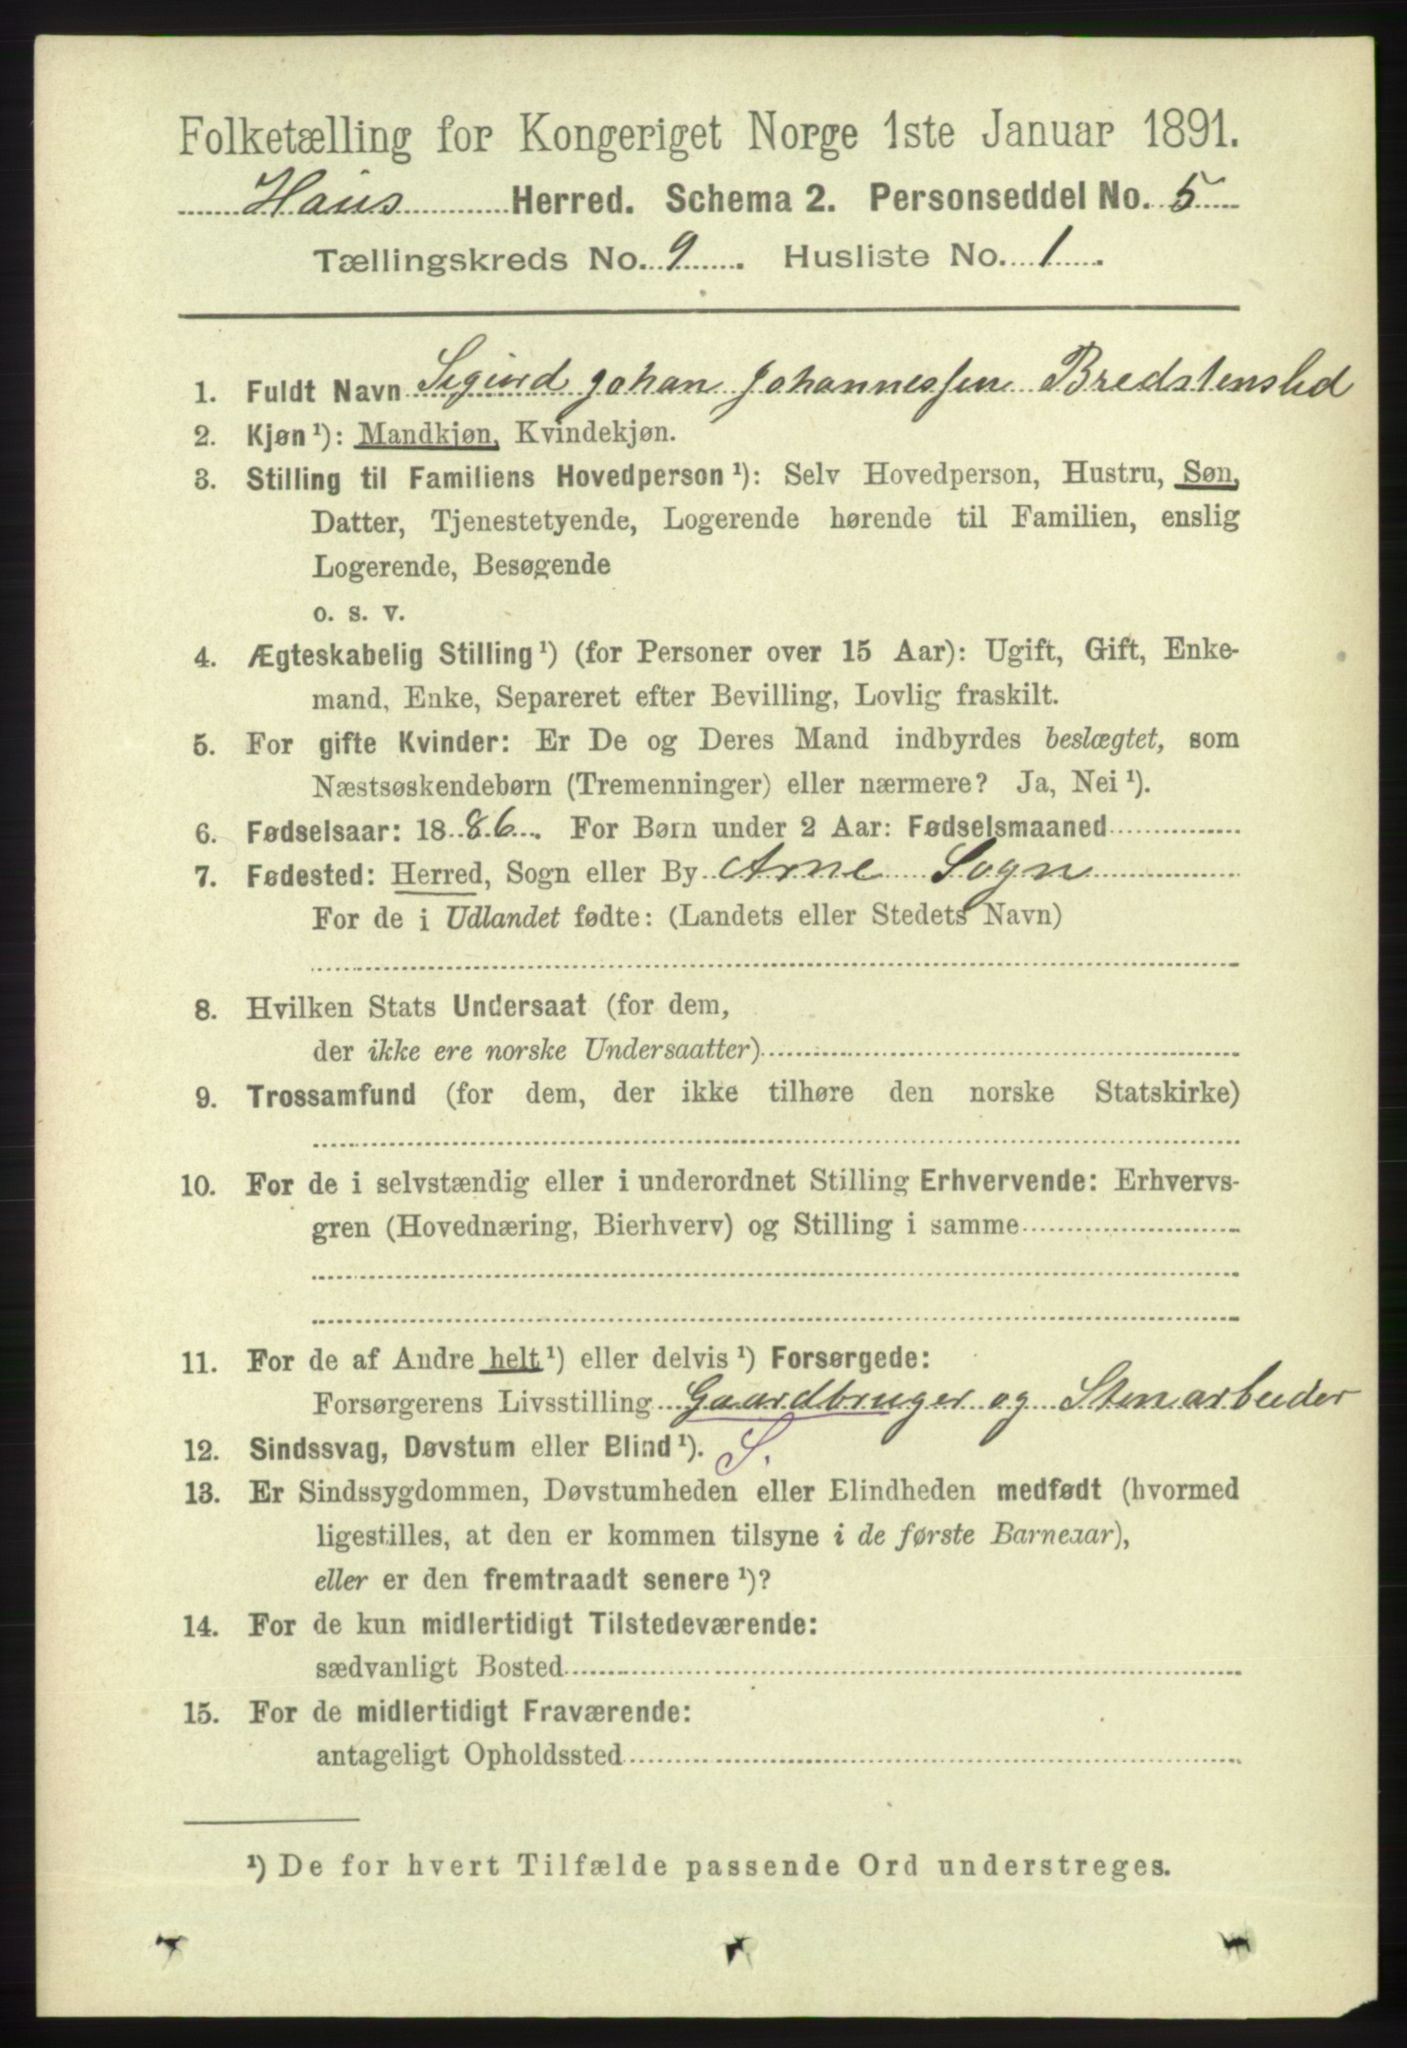 Folketælling for Kongeriget Norge 1ste Januar 1891.
Haus Herred. Schema 2. Personseddel No. 5
Tællingskreds No. 9. Husliste No. 1.
1. Fuldt Navn Sigurd Johan Johannessen Bredstensled
2. Kjøn¹): Mandkjøn, Kvindekjøn.
3. Stilling til Familiens Hovedperson¹): Selv Hovedperson, Hustru, Søn,
Datter, Tjenestetyende, Logerende hørende til Familien, enslig
Logerende, Besøgende
o. s. v.
4. Ægteskabelig Stilling¹) (for Personer over 15 Aar): Ugift, Gift, Enke-
mand, Enke, Separeret efter Bevilling, Lovlig fraskilt.
5. For gifte Kvinder: Er De og Deres Mand indbyrdes beslægtet, som
Næstsøskendebørn (Tremenninger) eller nærmere? Ja, Nei¹).
6. Fødselsaar: 1886. For Børn under 2 Aar: Fødselsmaaned
7. Fødested: Herred, Sogn eller By Arne Sogn
For de i Udlandet fødte: (Landets eller Stedets Navn)
8. Hvilken Stats Undersaat (for dem,
der ikke ere norske Undersaatter)
9. Trossamfund (for dem, der ikke tilhøre den norske Statskirke)
10. For de i selvstændig eller i underordnet Stilling Erhvervende: Erhvervs-
gren (Hovednæring, Bierhverv) og Stilling i samme
11. For de af Andre helt¹) eller delvis¹) Forsørgede:
Forsørgerens Livsstilling Gaardbruger og Stenarbeider
12. Sindssvag, Døvstum eller Blind¹). S.
13. Er Sindssygdommen, Døvstumheden eller Blindheden medfødt (hvormed
ligestilles, at den er kommen tilsyne i de første Barneaar),
eller er den fremtraadt senere¹)?
14. For de kun midlertidigt Tilstedeværende:
sædvanligt Bosted
15. For de midlertidigt Fraværende:
antageligt Opholdssted
¹) De for hvert Tilfælde passende Ord understreges.